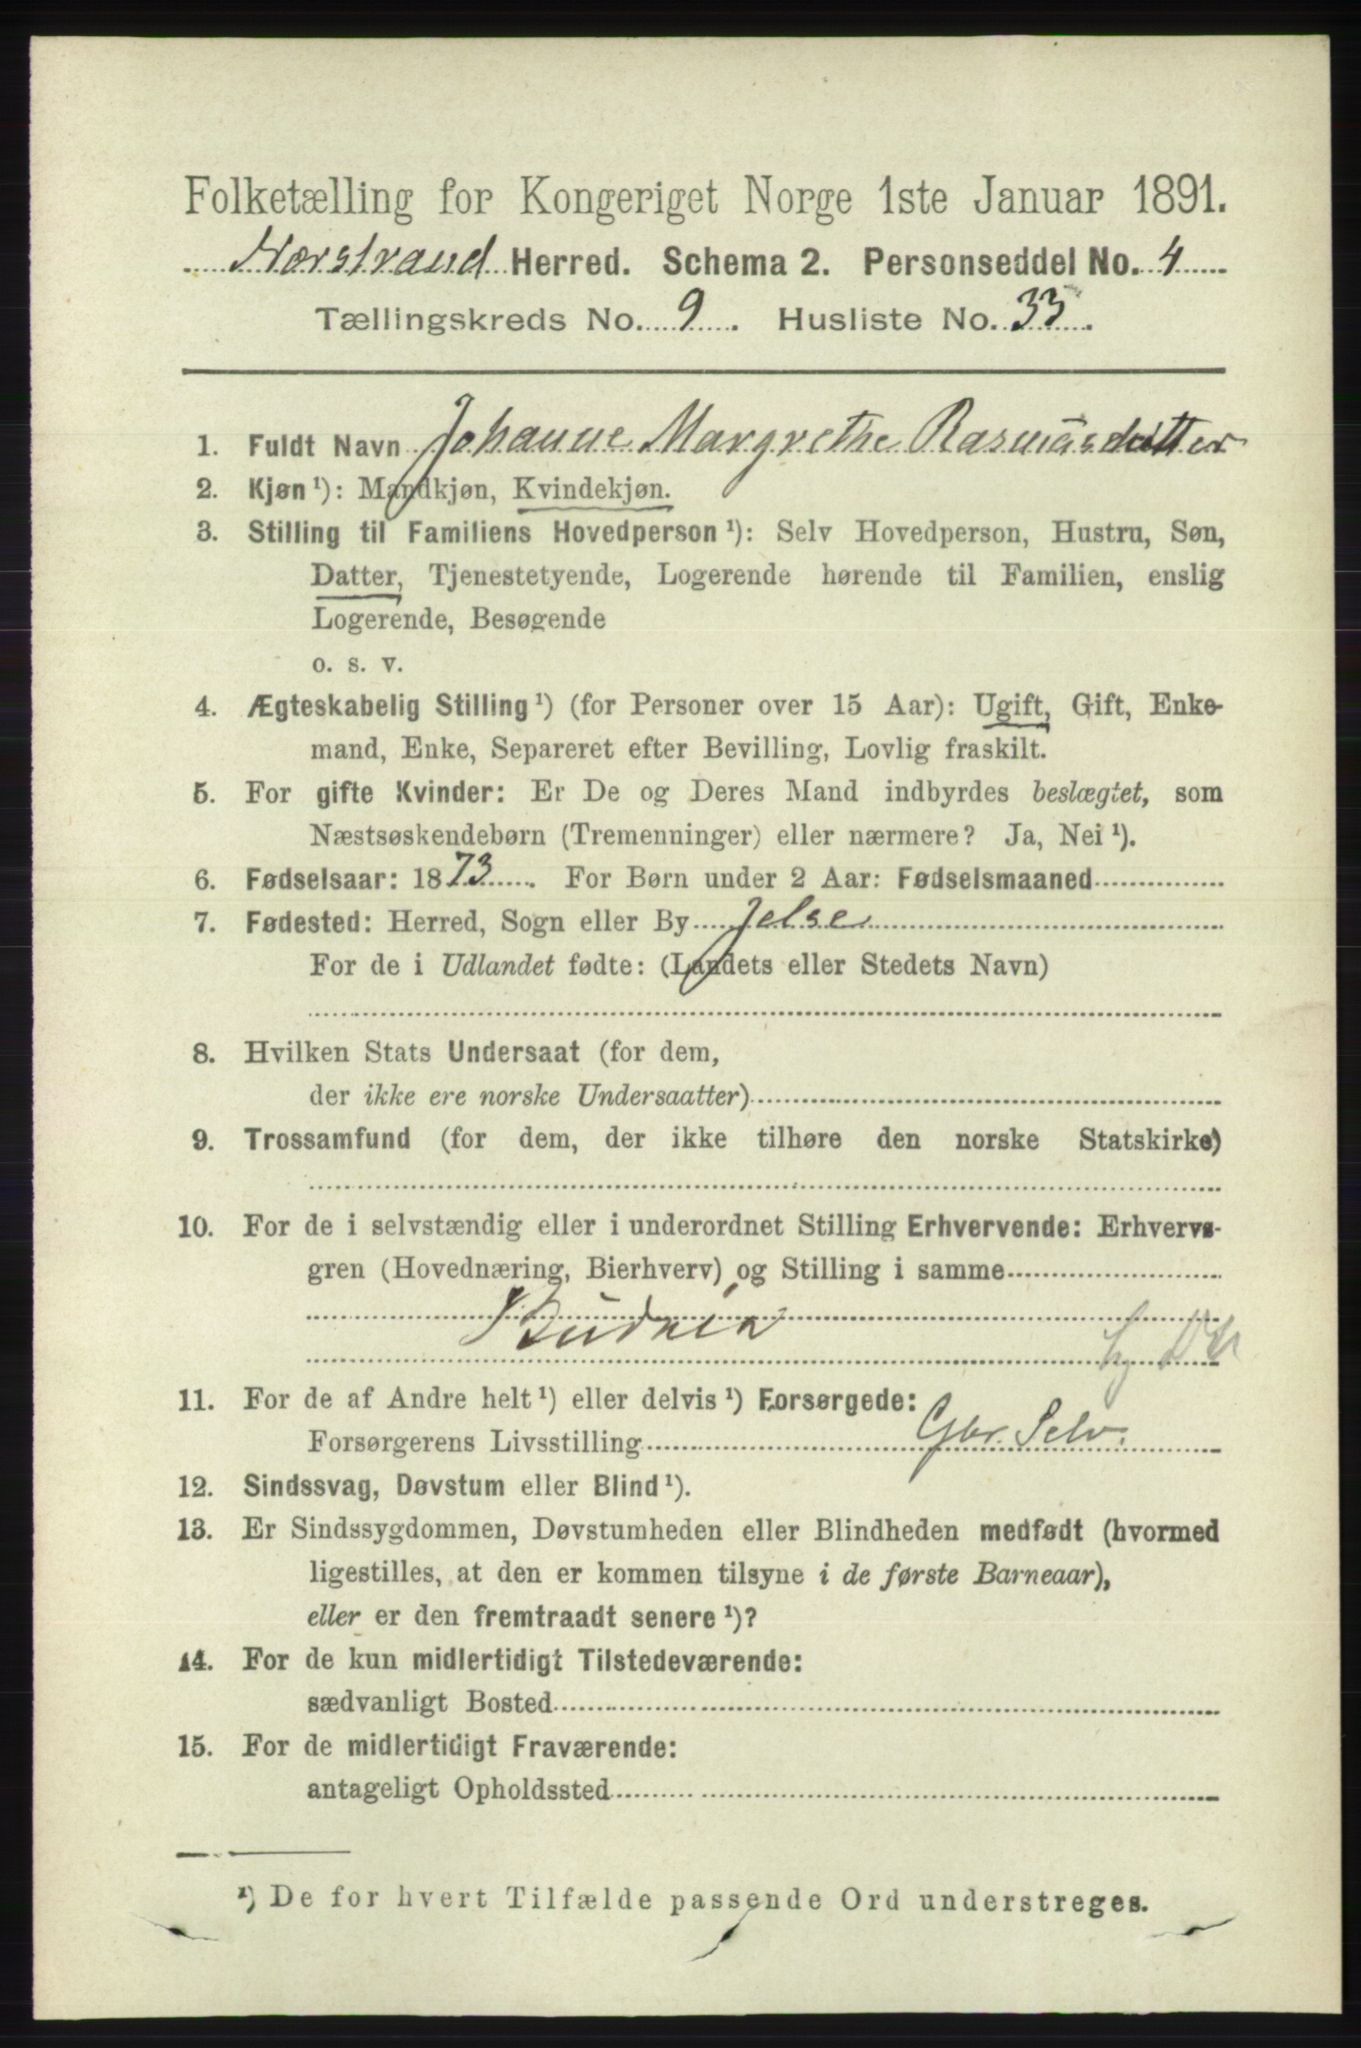 Folketælling for Kongeriget Norge 1ste Januar 1891.
Nærstrand Herred. Schema 2. Personseddel No. 4
Tællingskreds No. 9. Husliste No. 33.
1. Fuldt Navn Johanne Margrethe Rasmusdatter
2. Kjøn ¹): Mandkjøn, Kvindekjøn.
3. Stilling til Familiens Hovedperson ¹): Selv Hovedperson, Hustru, Søn,
Datter, Tjenestetyende, Logerende hørende til Familien, enslig
Logerende, Besøgende
o. s. v.
4. Ægteskabelig Stilling ¹) (for Personer over 15 Aar): Ugift, Gift, Enke-
mand, Enke, Separeret efter Bevilling, Lovlig fraskilt.
5. For gifte Kvinder: Er De og Deres Mand indbyrdes beslægtet, som
Næstsøskendebørn (Tremenninger) eller nærmere? Ja, Nei ¹).
6. Fødselsaar: 1873. For Børn under 2 Aar: Fødselsmaaned
7. Fødested: Herred, Sogn eller By Jelse
For de i Udlandet fødte: (Landets eller Stedets Navn)
8. Hvilken Stats Undersaat (for dem,
der ikke ere norske Undersaatter)
9. Trossamfund (for dem, der ikke tilhøre den norske Statskirke)
10. For de i selvstændig eller i underordnet Stilling Erhvervende: Erhvervs-
gren (Hovednæring, Bierhverv) og Stilling i samme
Budeia
11. For de af Andre helt ¹) eller delvis ¹) Forsørgede:
Forsørgerens Livsstilling Gbr. Selv.
12. Sindssvag, Døvstum eller Blind ¹).
13. Er Sindssygdommen, Døvstumheden eller Blindheden medfødt (hvormed
ligestilles, at den er kommen tilsyne i de første Barneaar),
eller er den fremtraadt senere ¹)?
14. For de kun midlertidigt Tilstedeværende:
sædvanligt Bosted
15. For de midlertidigt Fraværende:
antageligt Opholdssted
¹) De for hvert Tilfælde passende Ord understreges.